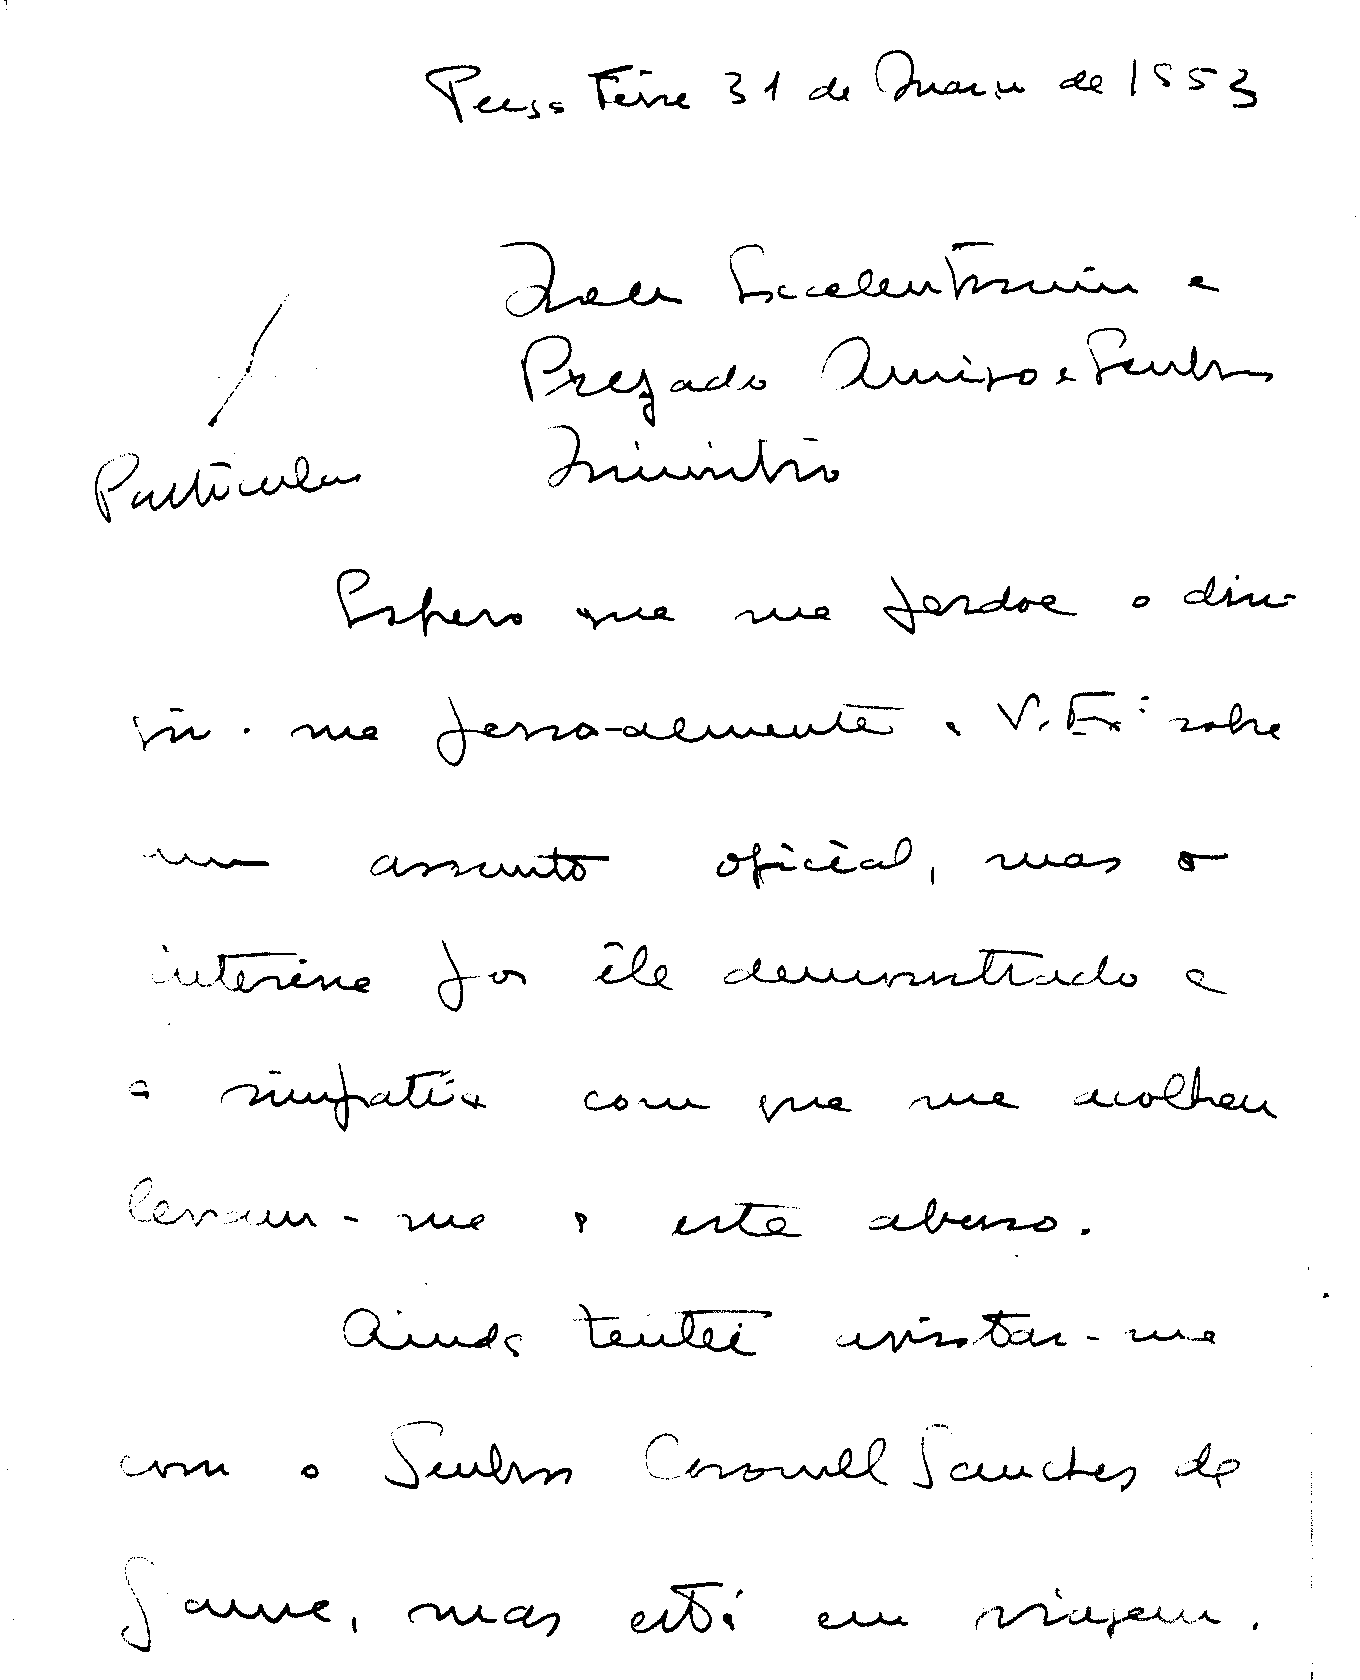 Terça Feira 31 de Março de 1953
Meu Excelentissimo e
Prezado Amigo e Senhor
Ministro
Particular
Espero que me perdoe o diri-
gir-me pessoalmente a V. Exª sobre
um assunto oficial, mas o
interesse por êle demonstrado e
a simpatia com que me acolheu
levam-me a este abuso.
Ainda tentei avistar-me
com o Senhor Coronell Sanches da
Gama, mas está em viagem.